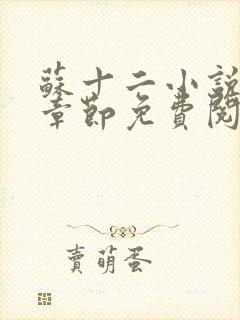 蘇十二小說
章節免費閱
賣萌蛋